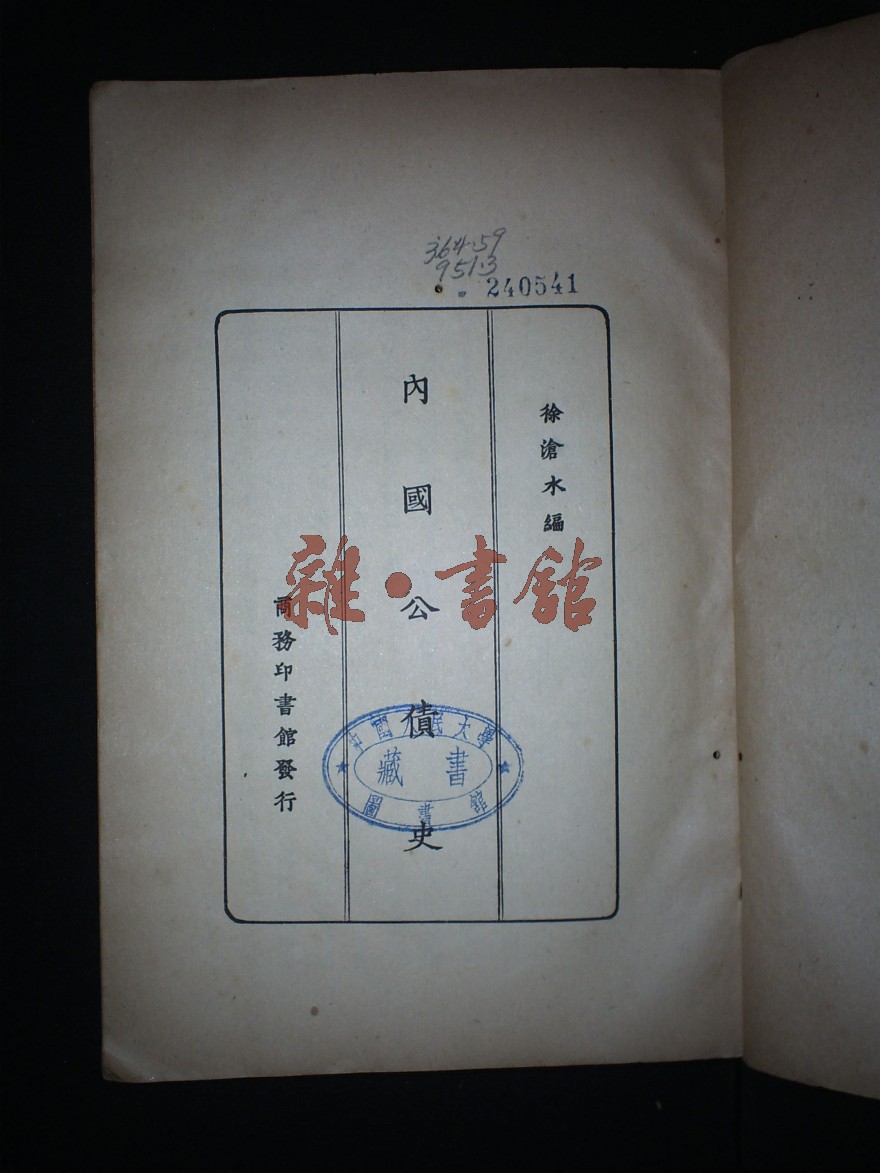 364.59
951.3
240541
徐滄水編
內國公債史
商務印書館發行
雜·書館
中國人民大學
藏書
圖書館